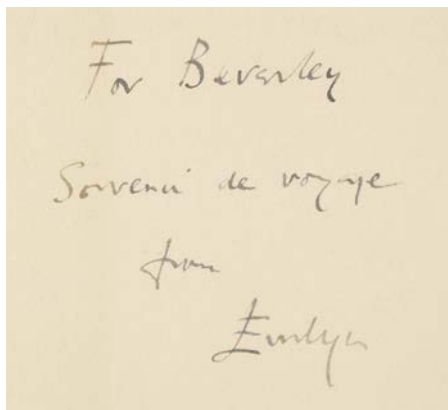 For Beverley
Souvenir de voyage
from
Evelyn